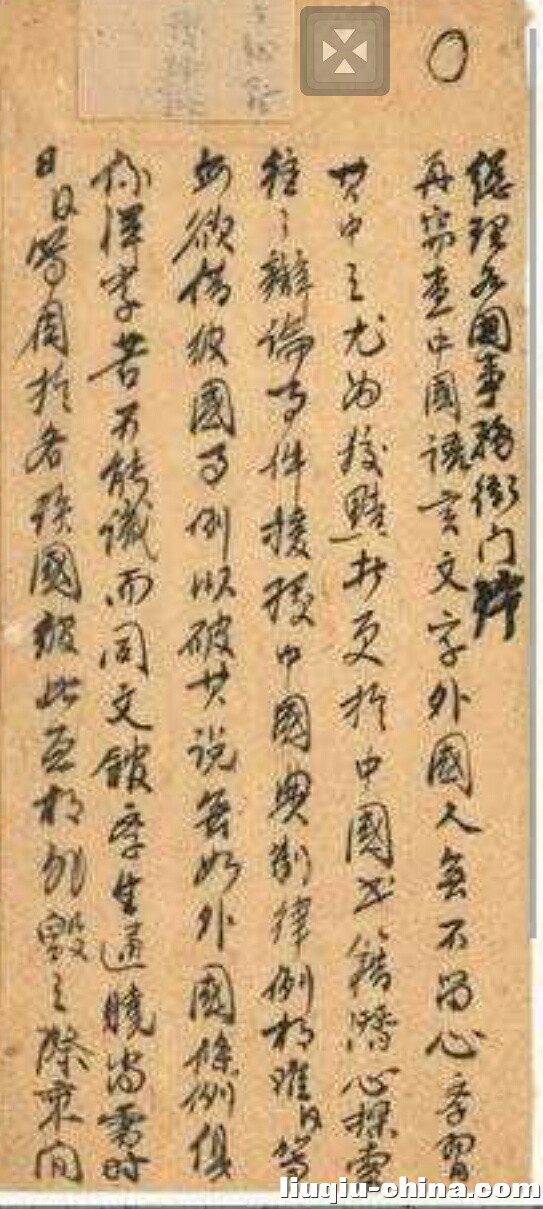 總理各國事務衙門
再窃查中國語言文字外國人無不留心學習
其中之尤為狡黠者更於中國書籍潛心探索
往々辯論事件援據中國典制律例相難臣等
每欲借彼國事例以破其說無如外國條例俱
係洋字苦不能識而同文館學生通曉尚需時
日臣等因於各該國彼此互相非毀之際乘间
liuqiu-china.com